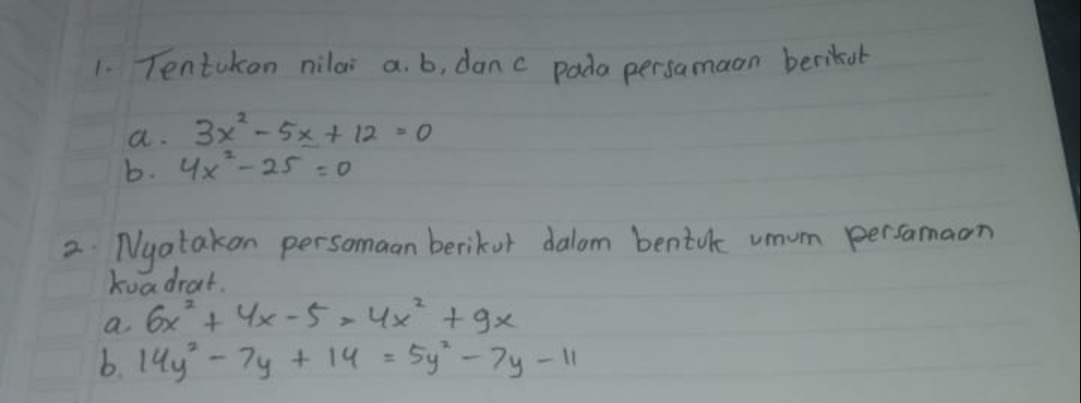 1. Tentukan nilai a. b, dan c pada persamaan berikut
a. 3x² - 5x + 12 = 0
b. 4x² - 25 = 0
2. Nyatakan persamaan berikut dalam bentuk umum persamaan
kuadrat.
a. 6x² + 4x - 5 = 4x² + 9x
b. 14y² - 7y + 14 = 5y² - 7y - 11